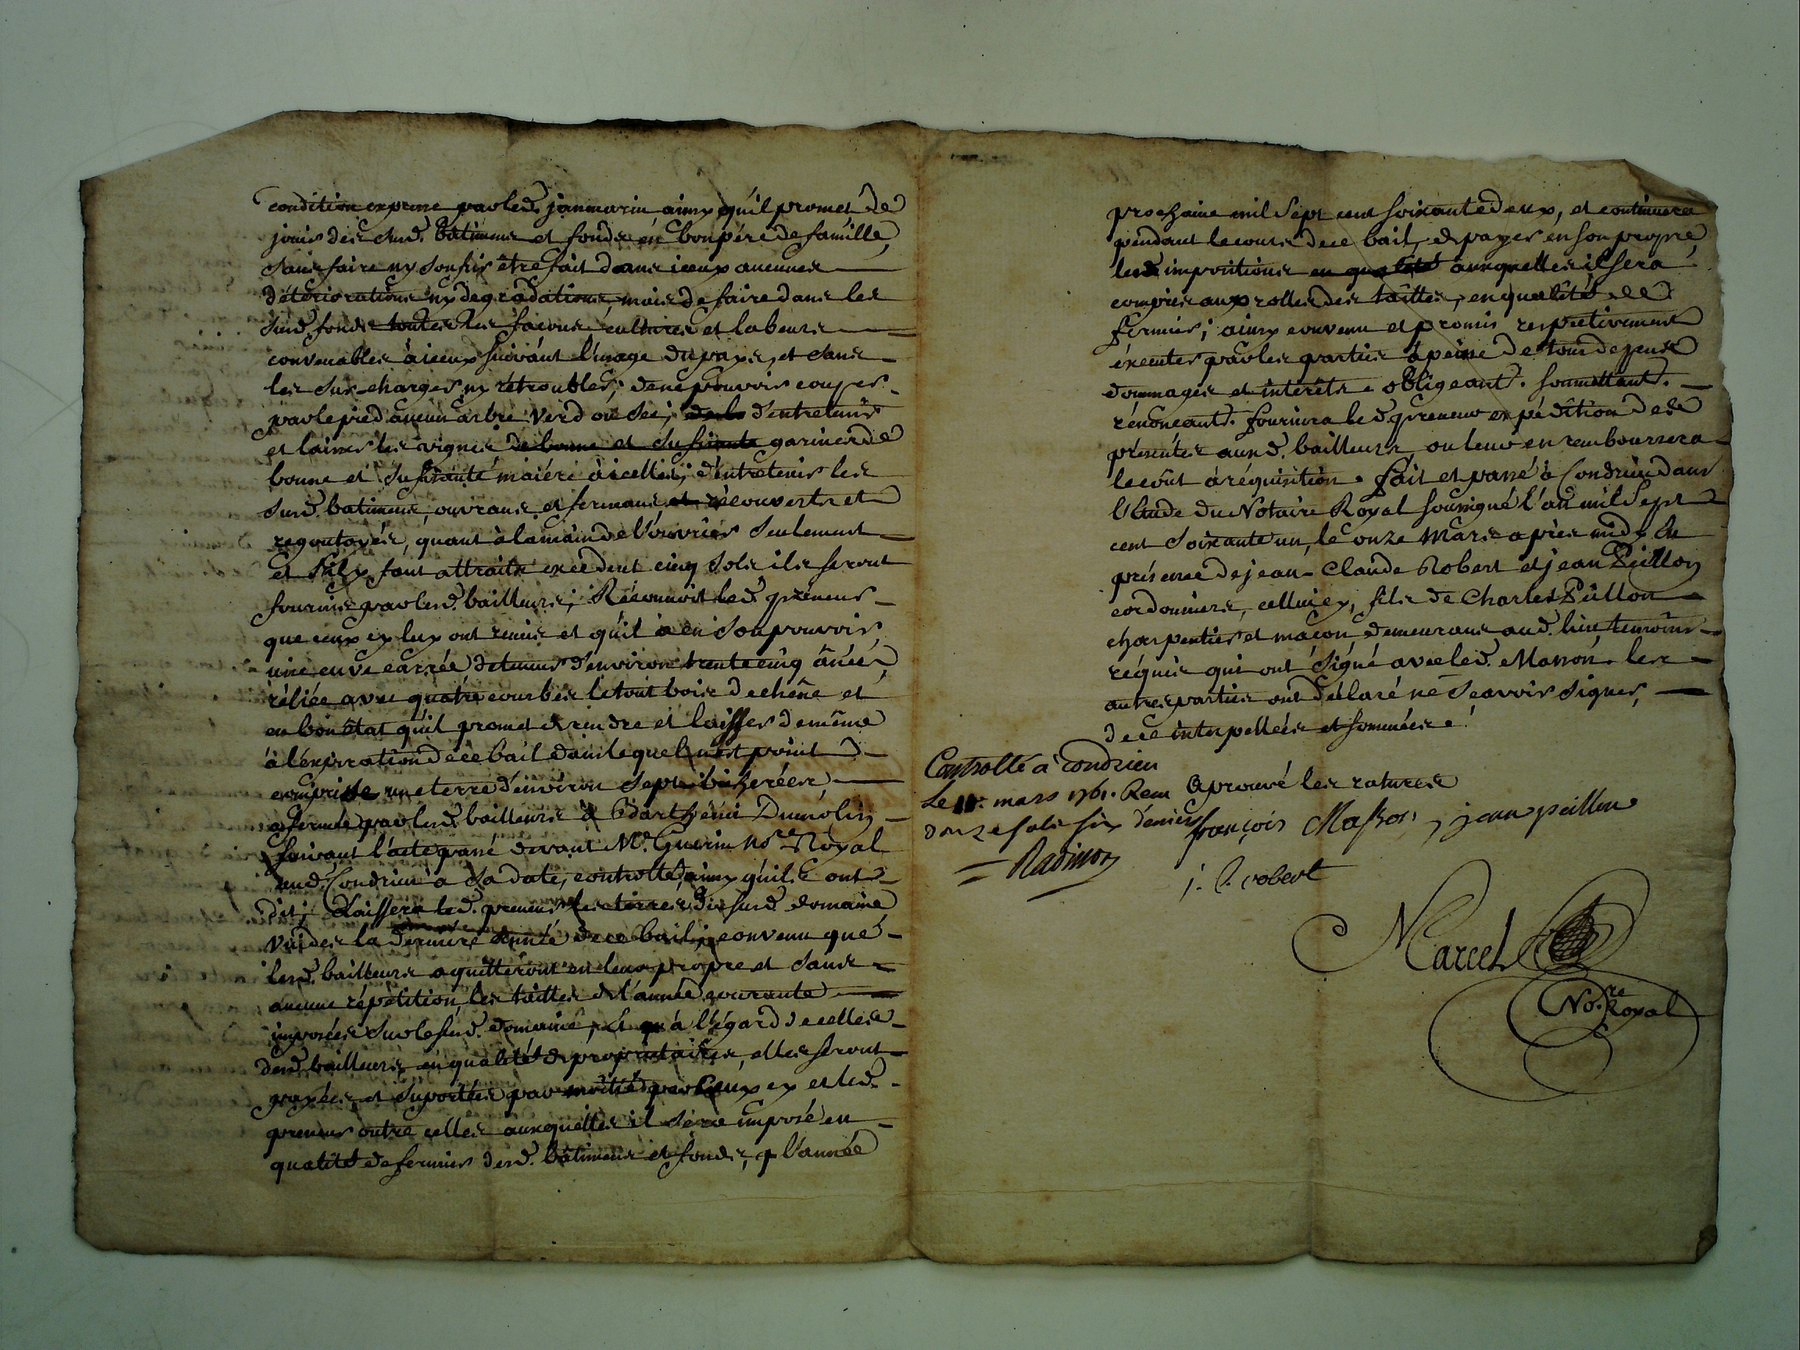 condition expresse par led. janmarin ainsy qu'il promet de
jouir des susd. bâtimens et fonds en bon père de famille,
sans faire ny soufrir être fait dans iceux aucunes
déteriorations ny degradations, mais de faire dans les
susd. fonds toutes les façons cultures et labeurs
convenables à iceux suivant l'usage du pays, et sans
les sur-charger ny rétroubler; de ne pouvoir couper
par le pied aucun arbre verd ou sec; d'entretenir
et laisser les vignes de bonne et sufisante garnies de
bonne et sufisante maiére à icelles; d'entretenir les
susd. batimens, ouvrans et fermans et recouverts et
regoutoyés, quant à la main de l'ouvrier seulement
et s'ily faut attraits excedent cinq sols ils seront
fournis par lesd. bailleurs; Réconnoit led. preneur
que ceux cy luy ont remis et qu'il a en son pouvoir
une cuve carrée de tenue d'environ trente cinq ânées
réliée avec quatre courbes le tout bois de chêne et
en bon état qu'il promet de rendre et laisser de même
à l'expiration de ce bail dans lequel n'est point
comprise une terre d'environ sept bicherées,
affermée par lesd. bailleurs à Barthemi Dumolin
suivant l'acte passé devant Me. Guerin no.re Royal
aud. Condrieu à sa date, controllé, ainsy qu'ils ont
dit; Laissera led. preneur les terres du susd. domaine
vuides la derniere année de ce bail; convenu que
lesd. bailleurs aquitteront en leur propre et sans
aucune répétition les tailles de l'année courante
imposées sur le susd. domaine, et qu'à l'égard de celles
desd. bailleurs en qualité de propriétaires, elles seront
payées et suportées par moitié par ceux cy et led.
preneur outre celles auxquelles il sera imposé en
qualité de fermier desd. bâtimens et fonds, p l'année
prochaine mil sept cent soixante deux, et continuera
pendant le cours de ce bail, de payer en son propre
lesd. impositions en qualité auxquelles il sera
compris aux rolles des tailles, en qualité de
fermier; ainsy convenu et promis respectivement
éxecuter par les parties à peine de tous depens
dommages et intérêts. obligeant. soumettant.
rénonceant. fournira led. preneur expédition des
présentes auxd. bailleurs, ou leur en remboursera
le coût à réquisition. fait et passé à Condrieu dans
l'étude du Notaire Royal soussigné l'an mil sept
cent soixante un, le onze Mars après midy En
présence de jean-Claude Robert et jean Püllon
cordonniers, celluicy, fils de Charles Püllon
charpentier et maçon, demeurans aud. lieu, temoins
réquis qui ont signé avec led. Masson. les
autres parties ont déclaré ne sçavoir signer,
de ce interpellées et sommées.
Controllé a condrieu
Le mars 1761. Reçu
douze sols six deniers
Aprouvé les ratures
françois Masson, jean peillon
j. C. robert
Marcel
No.re Royal